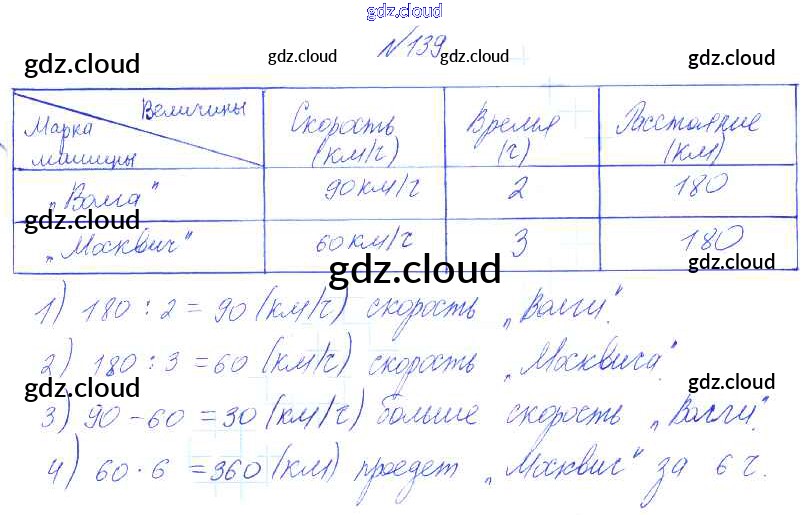 gdz.cloud
№139
gdz.cloud gdz.cloud gdz.cloud
Величины
Марка машины
Скорость (км/ч)
Время (ч)
Расстояние (км)
„Волга" 90 км/ч 2 180
„Москвич" 60 км/ч 3 180
gdz.cloud gdz.cloud
1) 180 : 2 = 90 (км/ч) скорость „Волги".
2) 180 : 3 = 60 (км/ч) скорость „Москвича".
gdz.cloud gdz.cloud gdz.cloud
3) 90 - 60 = 30 (км/ч) больше скорость „Волги".
4) 60 · 6 = 360 (км) проедет „Москвич" за 6 ч.
gdz.cloud